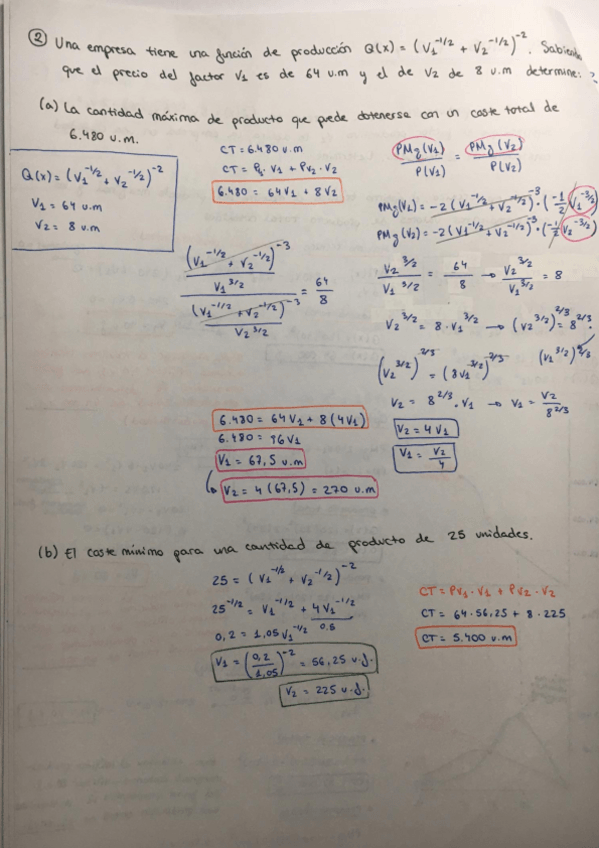 ② Una empresa tiene una función de producción Q(x) = (V₁^-1/2 + V₂^-1/2)^-2. Sabiendo
que el precio del factor V₁ es de 64 u.m y el de V₂ de 8 u.m determine:
(a) La cantidad máxima de producto que puede obtenerse con un coste total de
6.480 u.m.
Q(x) = (V₁^-1/2 + V₂^-1/2)^-2
V₁ = 64 u.m
V₂ = 8 u.m
CT = 6.480 u.m
CT = P₁ · V₁ + PV₂ · V₂
6.480 = 64V₁ + 8V₂
PMg(V₁)/P(V₁) = PMg(V₂)/P(V₂)
PMg(V₁) = -2(V₁^-1/2 + V₂^-1/2)^-3 · (-1/2 V₁^-3/2)
PMg(V₂) = -2(V₁^-1/2 + V₂^-1/2)^-3 · (-1/2 V₂^-3/2)
((V₁^-1/2 + V₂^-1/2)^-3 / V₁^3/2) / ((V₁^-1/2 + V₂^-1/2)^-3 / V₂^3/2) = 64/8
V₂^3/2 / V₁^3/2 = 64/8 → V₂^3/2 / V₁^3/2 = 8
V₂^3/2 = 8 · V₁^3/2 → (V₂^3/2)^2/3 = 8^2/3 · (V₁^3/2)^2/3
(V₂^3/2)^2/3 = (8V₁^3/2)^2/3
V₂ = 8^2/3 · V₁ → V₁ = V₂/8^2/3
V₂ = 4V₁
V₁ = V₂/4
6.480 = 64V₁ + 8(4V₁)
6.480 = 96V₁
V₁ = 67,5 u.m
V₂ = 4(67,5) = 270 u.m
(b) El coste mínimo para una cantidad de producto de 25 unidades.
25 = (V₁^-1/2 + V₂^-1/2)^-2
25^-1/2 = V₁^-1/2 + 4V₁^-1/2
0,5
0,2 = 1,05V₁^-1/2
V₁ = (0,2/1,05)^-2 = 56,25 u.f.
V₂ = 225 u.f.
CT = PV₁ · V₁ + PV₂ · V₂
CT = 64 · 56,25 + 8 · 225
CT = 5.400 u.m